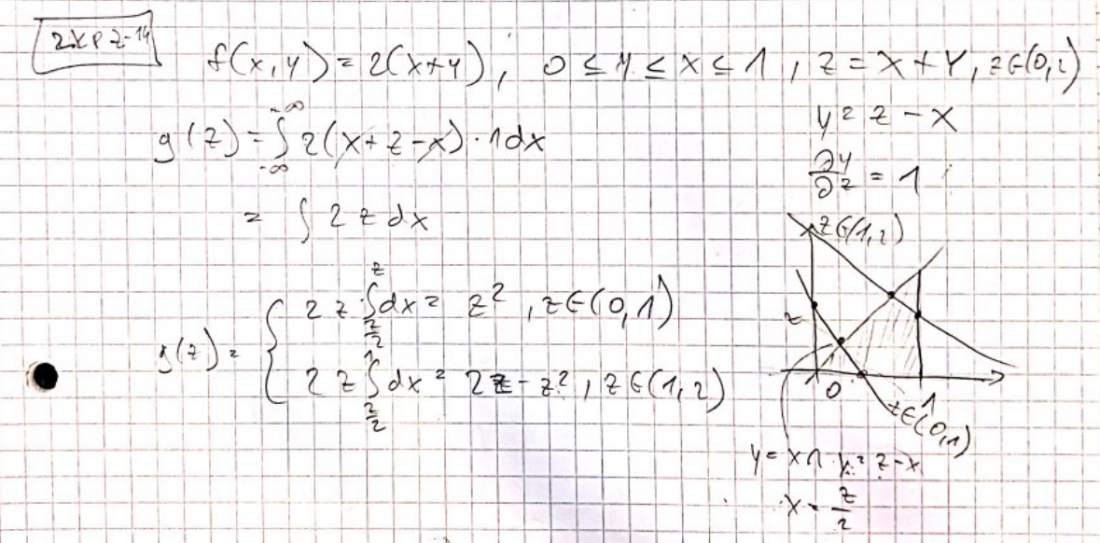 2XPZ-14
f(x,y) = 2(x+y), 0 ≤ y ≤ x ≤ 1, z = x + y, z∈(0,2)
y = z - x
g(z) = ∫_{-∞}^{-∞} 2(x+z-x) · 1dx
∂y/∂z = 1
= ∫ 2z dx
z∈(1,2)
g(z) = { 2z·∫_{z/2}^{z} dx = z², z∈(0,1)
2z ∫_{z/2}^{1} dx = 2z - z², z∈(1,2)
z
0 1
z∈(0,1)
y = x ∩ y = z-x
x = z/2